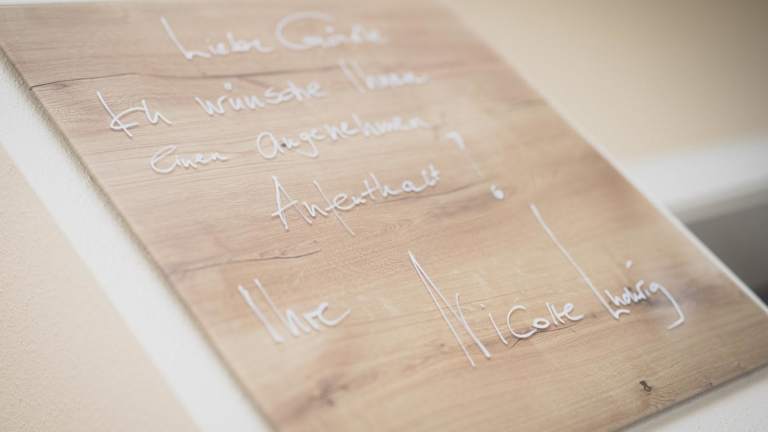 Liebe Gäste
Ich wünsche Ihnen
einen angenehmen
Aufenthalt!
Ihre Nicole Ludwig